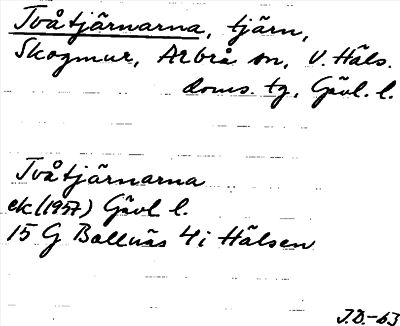 Tvåtjärnarna, tjärn,
Skogmur, Arbrå sn, V. Häls.
doms. tg, Gävl. l.
Tvåtjärnarna
ek (1957) Gävl l.
15 G Bollnäs 4i Hälsen
J.D.-63